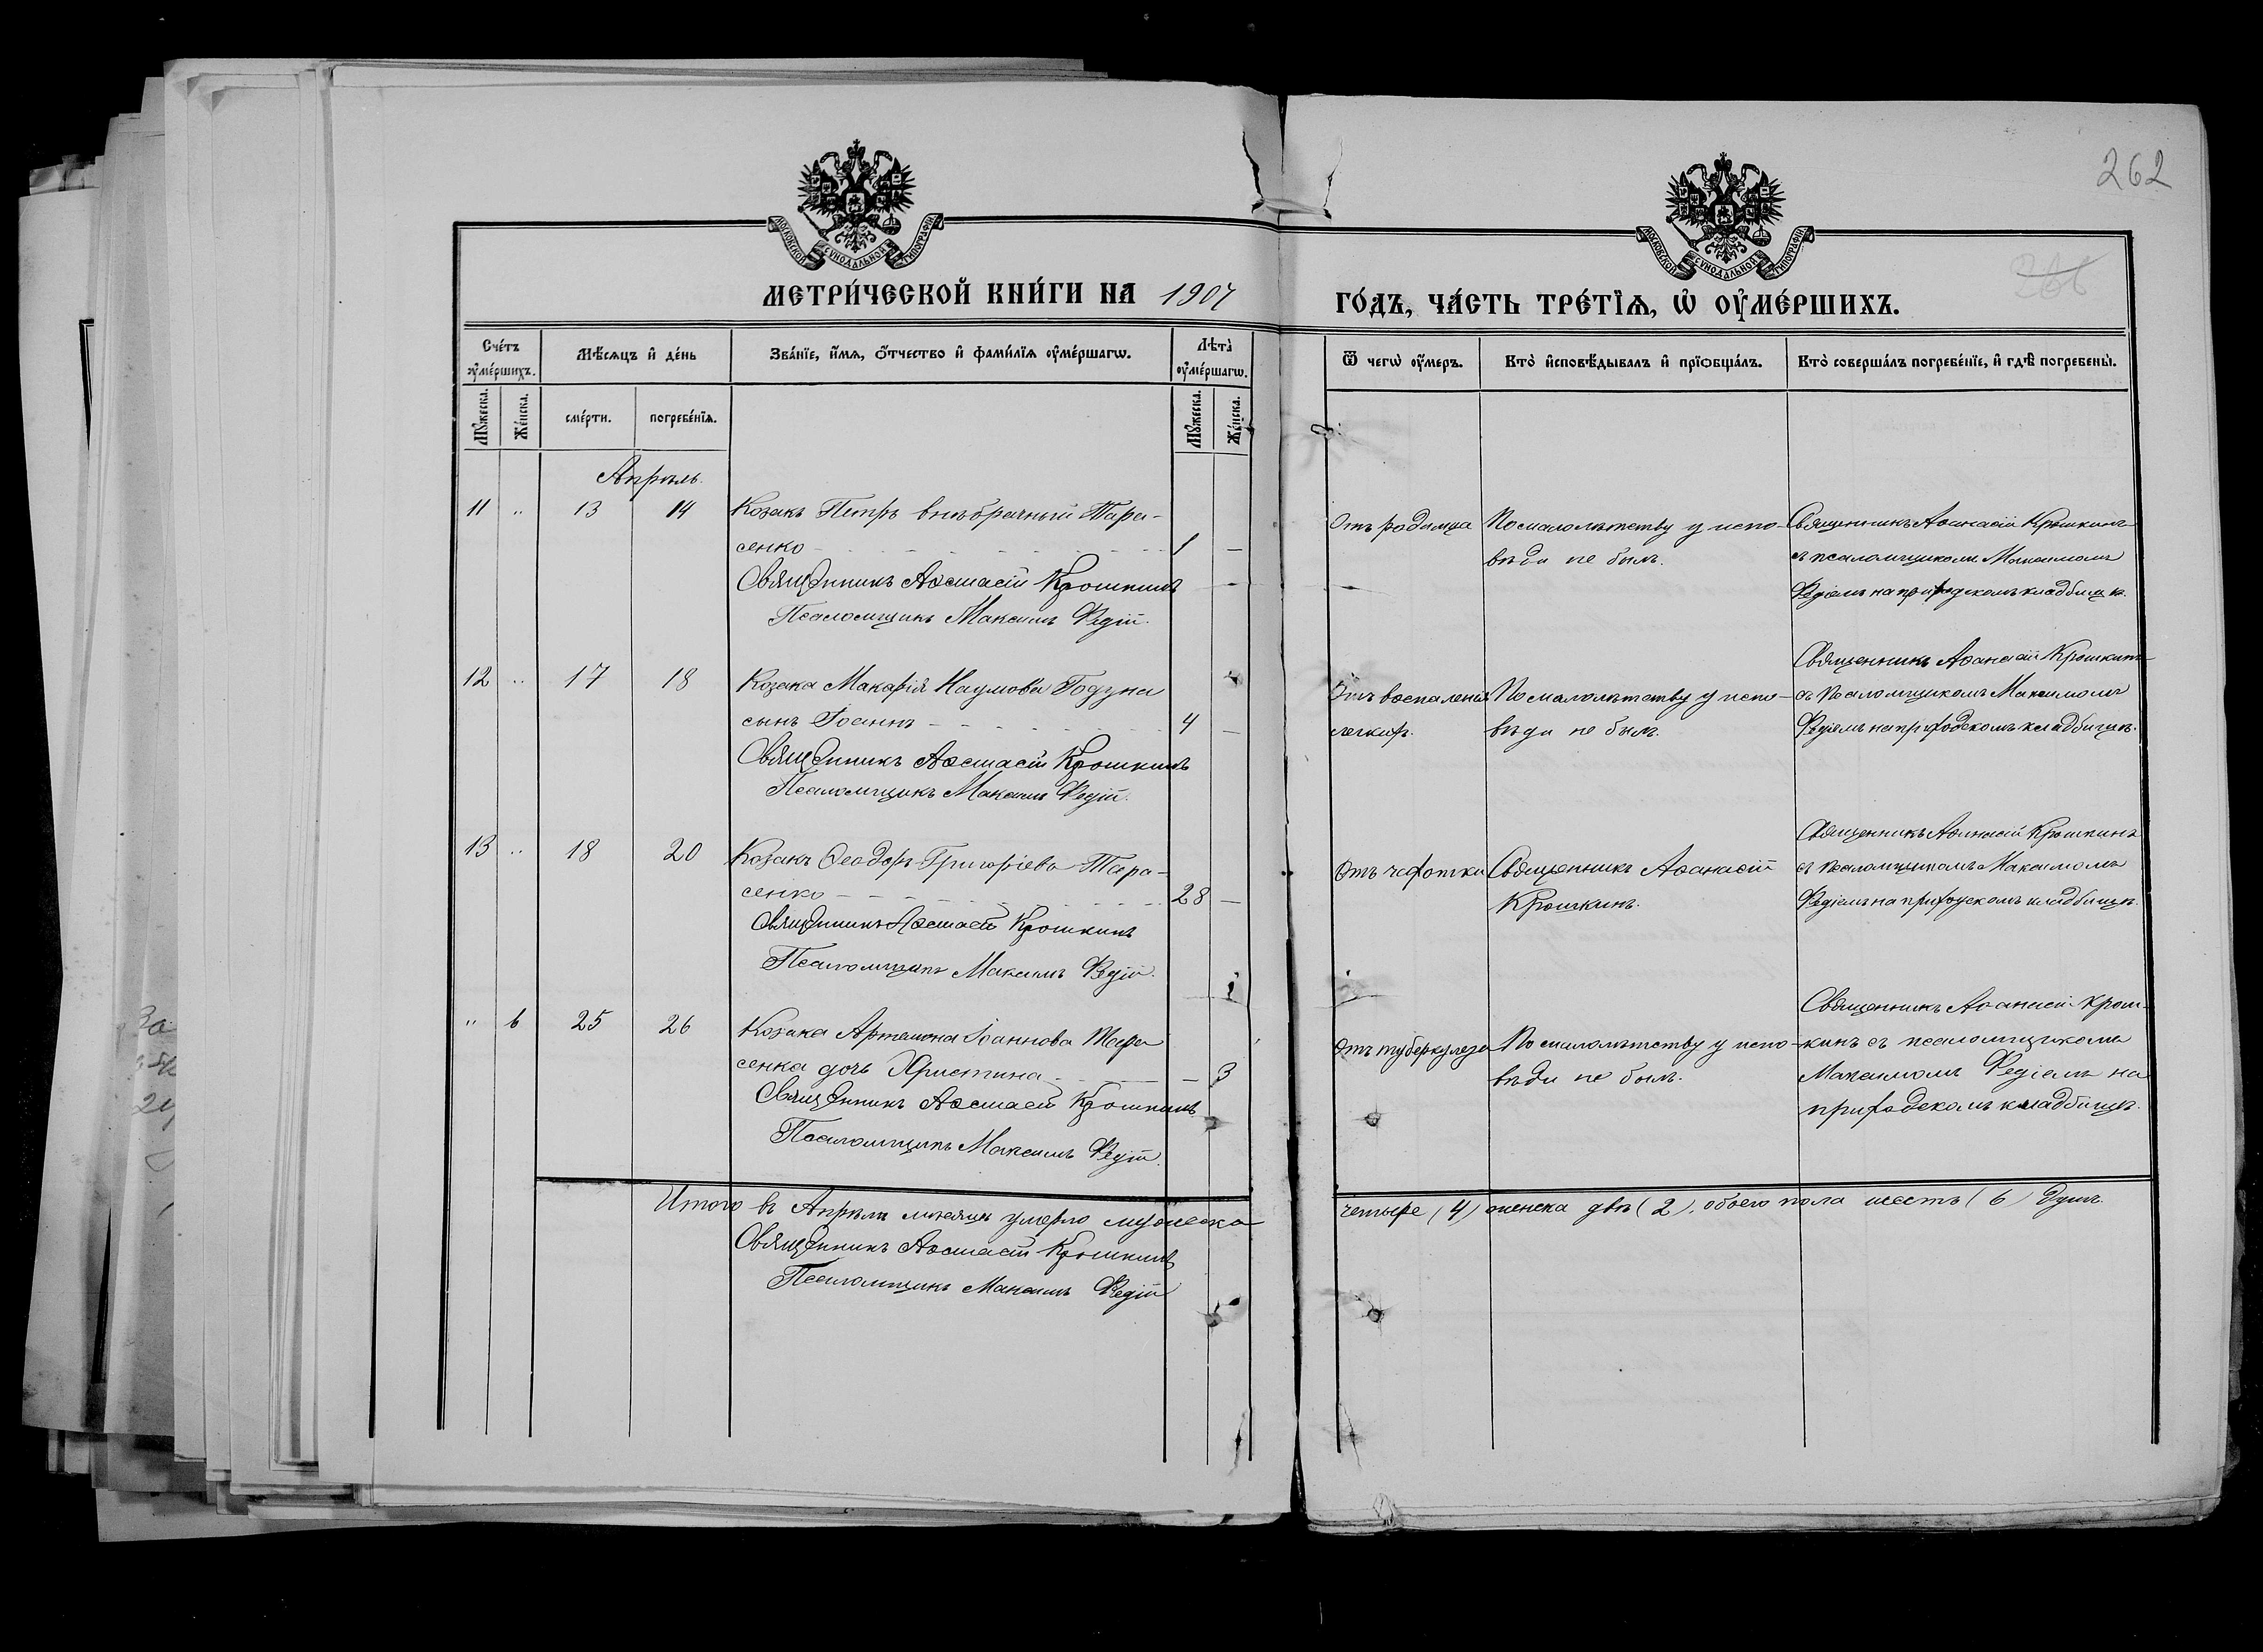 262
МОСКОВСКОЙ СУНОДАЛЬНОЙ ТИПОГРАФІИ
МОСКОВСКОЙ СУНОДАЛЬНОЙ ТИПОГРАФІИ
МЕТРИ́ЧЕСКОЙ КНИ́ГИ НА 1907
ГО́ДЪ, ЧА́СТЬ ТРЕ́ТЇѦ, Ѡ҆ ОУ҆МЕ́РШИХЪ.
Сче́тъ оу҆ме́ршихъ.
Мѣ́сѧцъ и҆ де́нь
Зва́нїе, и҆́мѧ, ѻ҆́тчество и҆ фами́лїѧ оу҆ме́ршагѡ.
Лѣ́та оу҆ме́ршагѡ.
Ѿ чегѡ̀ оу҆́меръ.
Кто̀ и҆сповѣ́дывалъ и҆ прїѻбща́лъ.
Кто̀ соверша́лъ погребе́нїе, и҆ гдѣ̀ погребены̀.
Мꙋ́жеска.
Же́нска.
сме́рти.
погребе́нїѧ.
Мꙋ́жеска.
Же́нска.
Апрѣль.
11 „ 13 14 Козакъ Петръ внѣбрачный Тара-
сенко 1 —
Священникъ Аѳанасій Крошкинъ
Псаломщикъ Максимъ Редій.
Отъ родимца
По малолѣтству у испо-
вѣди не былъ.
Священникъ Аѳанасій Крошкинъ
съ псаломщикомъ Максимомъ
Редіемъ на приходскомъ кладбищѣ.
12 „ 17 18 Козака Макарія Наумова Годуна
сынъ Іоаннъ 4 —
Священникъ Аѳанасій Крошкинъ
Псаломщикъ Максимъ Редій.
Отъ воспаленія
легкихъ.
По малолѣтству у испо-
вѣди не былъ.
Священникъ Аѳанасій Крошкинъ
съ псаломщикомъ Максимомъ
Редіемъ на приходскомъ кладбищѣ.
13 „ 18 20 Козакъ Ѳеодоръ Григоріевъ Тара-
сенко 28 —
Священникъ Аѳанасій Крошкинъ
Псаломщикъ Максимъ Редій.
Отъ чахотки
Священникъ Аѳанасій
Крошкинъ.
Священникъ Аѳанасій Крошкинъ
съ псаломщикомъ Максимомъ
Редіемъ на приходскомъ кладбищѣ.
„ 6 25 26 Козака Артемона Іоаннова Тара
сенка дочь Христина — 3
Священникъ Аѳанасій Крошкинъ
Псаломщикъ Максимъ Редій.
Отъ туберкулеза
По малолѣтству у испо-
вѣди не былъ.
Священникъ Аѳанасій Крош-
кинъ съ псаломщикомъ
Максимомъ Редіемъ на
приходскомъ кладбищѣ.
Итого въ Апрѣлѣ мѣсяцѣ умерло мужеска
четыре (4) женска двѣ (2), обоего пола шесть (6) душъ.
Священникъ Аѳанасій Крошкинъ
Псаломщикъ Максимъ Редій